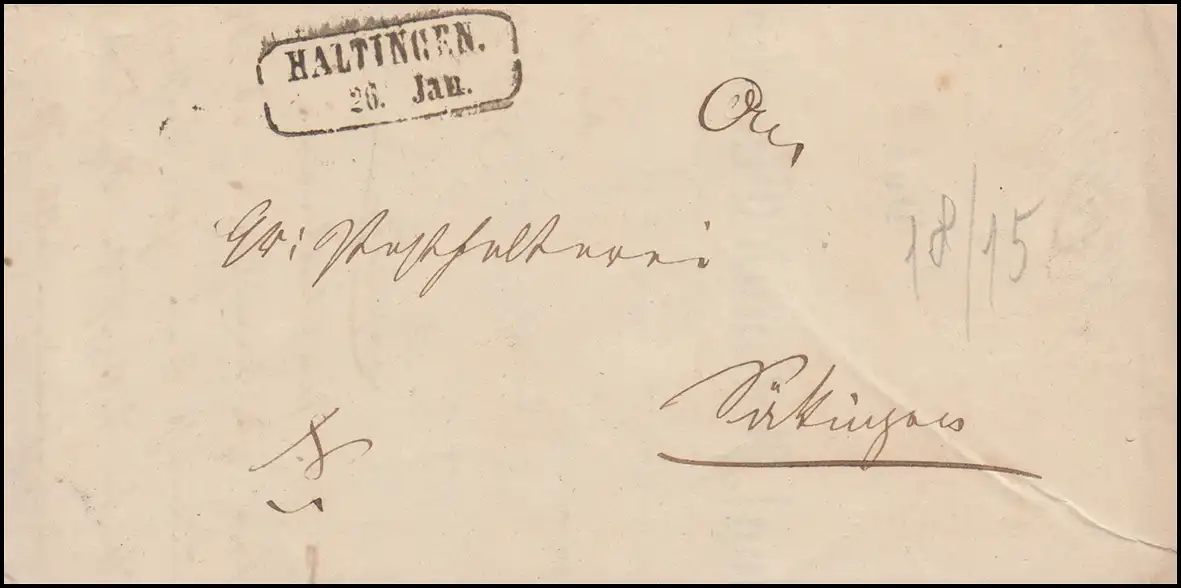 HALTINGEN.
26. Jan.
An
Gr: Posthalterei
18/15
Säckingen